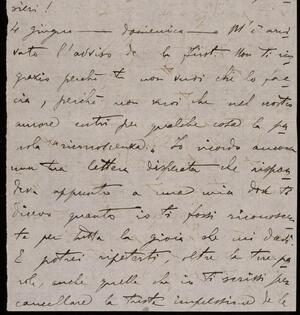 sieri!
4 giugno — domenica — M'è arri-
vato l'avviso de la first. Non ti rin-
grazio perchè tu non vuoi ch'io lo fac-
cia, perchè non vuoi che nel nostro
amore entri per qualche cosa la pa-
rola "riconoscenza". Io ricordo ancora
una tua lettera disperata che rispon-
deva appunto a una mia dove ti
dicevo quanto io ti fossi riconoscen-
te per tutta la gioia che mi dai.
E potrei ripeterti, oltre le tue pa-
role, anche quelle che io ti scrissi per
cancellare la triste impressione de le